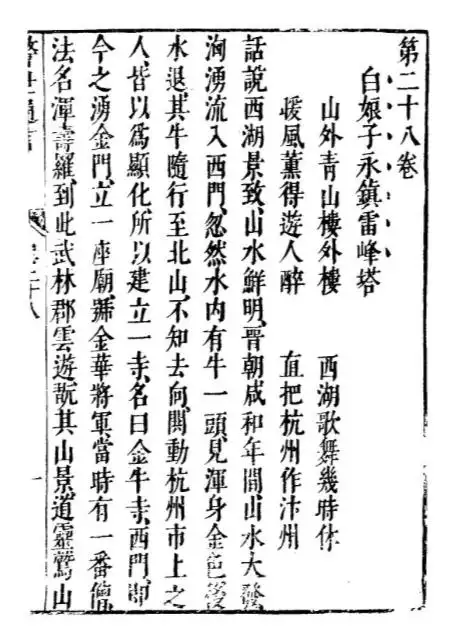 第二十八卷
白娘子永鎮雷峰塔
山外青山樓外樓　西湖歌舞幾時休
煖風薰得遊人醉　直把杭州作汴州
話說西湖景致、山水鮮明、晉朝咸和年間、山水大發
洶湧流入西門、忽然水內有牛一頭、見渾身金色後
水退、其牛隨行至北山、不知去向、鬨動杭州市上之
人、皆以爲顯化所以建立一寺、名曰金牛寺、西門、卽
今之湧金門、立一座廟、號金華將軍、當時有一番僧
法名渾壽羅、到此武林郡雲遊、翫其山景、道靈鷲山
警世通言　卷二十八　一